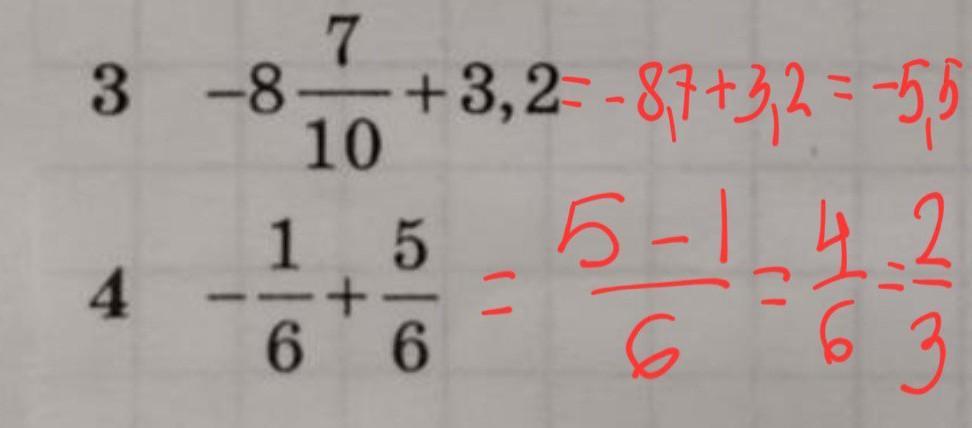 3 −8 7/10 + 3,2 = -8,7+3,2 = -5,5
4 −1/6 + 5/6 = (5-1)/6 = 4/6 = 2/3